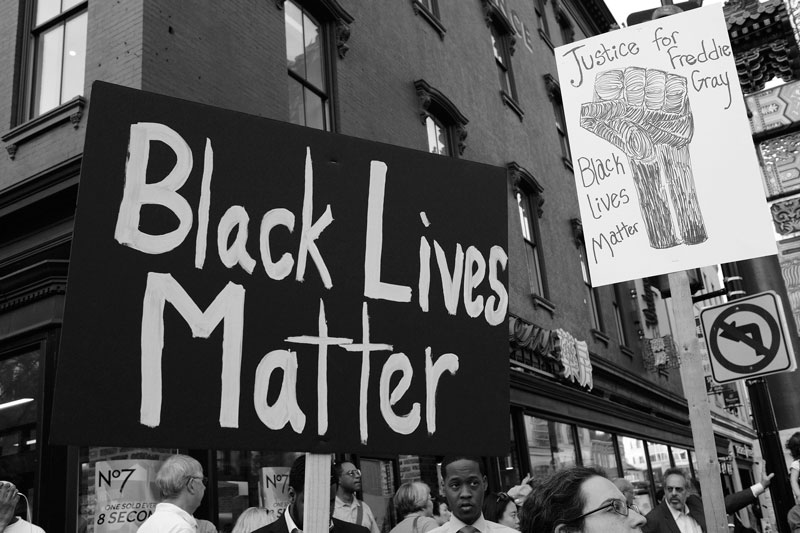 Black Lives
Matter
Justice for
Freddie
Gray
Black
Lives
Matter
No7
ONE SOLD EVERY
8 SECON
No7